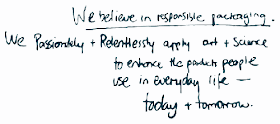 We believe in responsible packaging.
We Passionately + Relentlessly apply art + science
to enhance the products people
use in everyday life —
today + tomorrow.